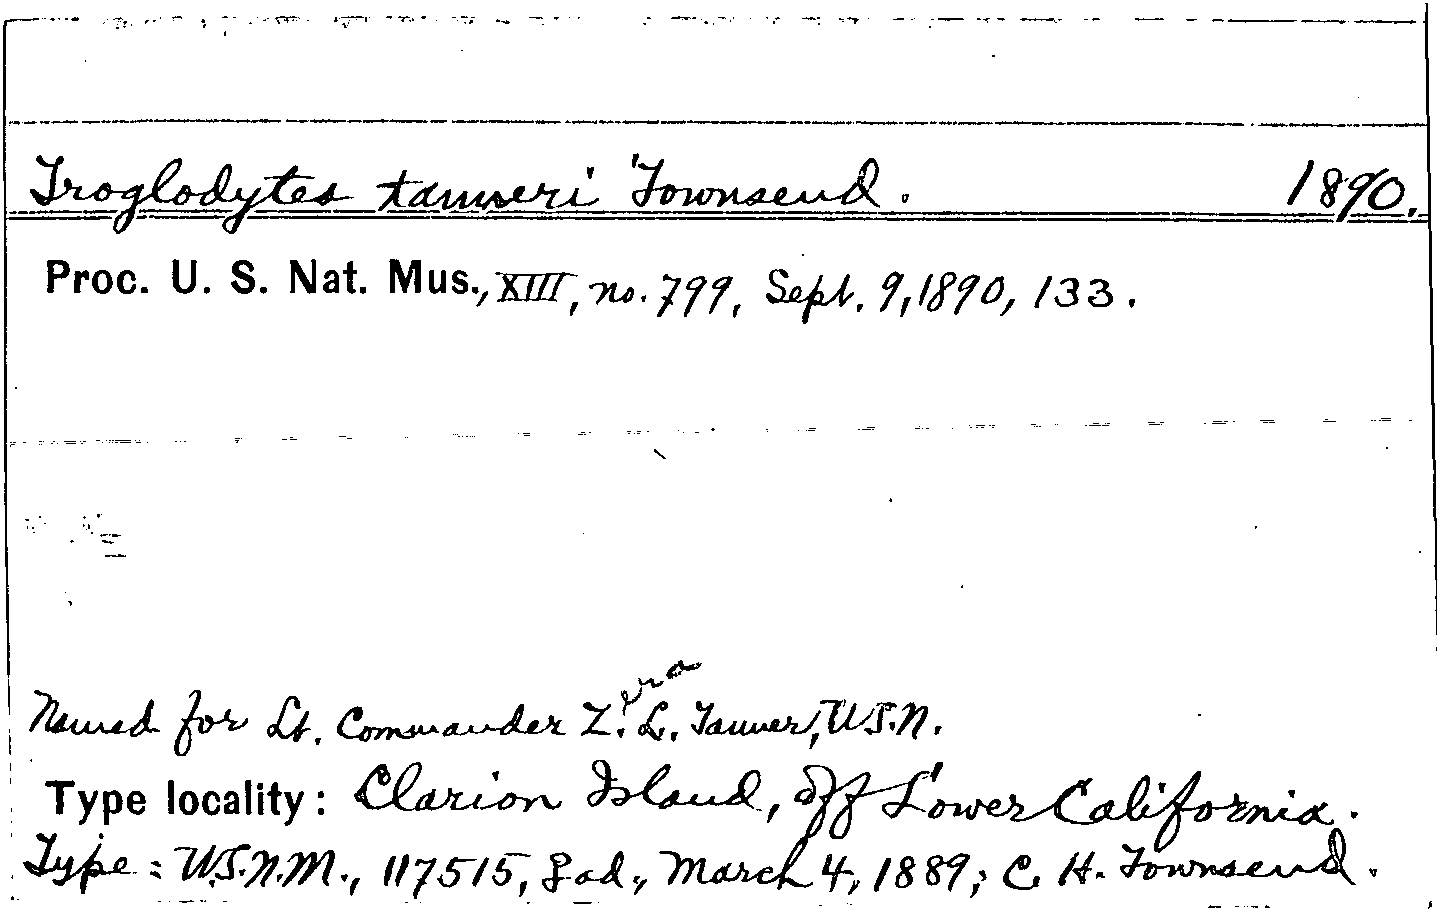 Troglodytes tanneri Townsend. 1890.
Proc. U. S. Nat. Mus., XIII, no. 799, Sept. 9, 1890, 133.
era
Named for Lt. Commander Z. L. Tanner, U.S.N.
Type locality: Clarion Island, off Lower California.
Type: U.S.N.M., 117515, ad., March 4, 1889; C. H. Townsend.